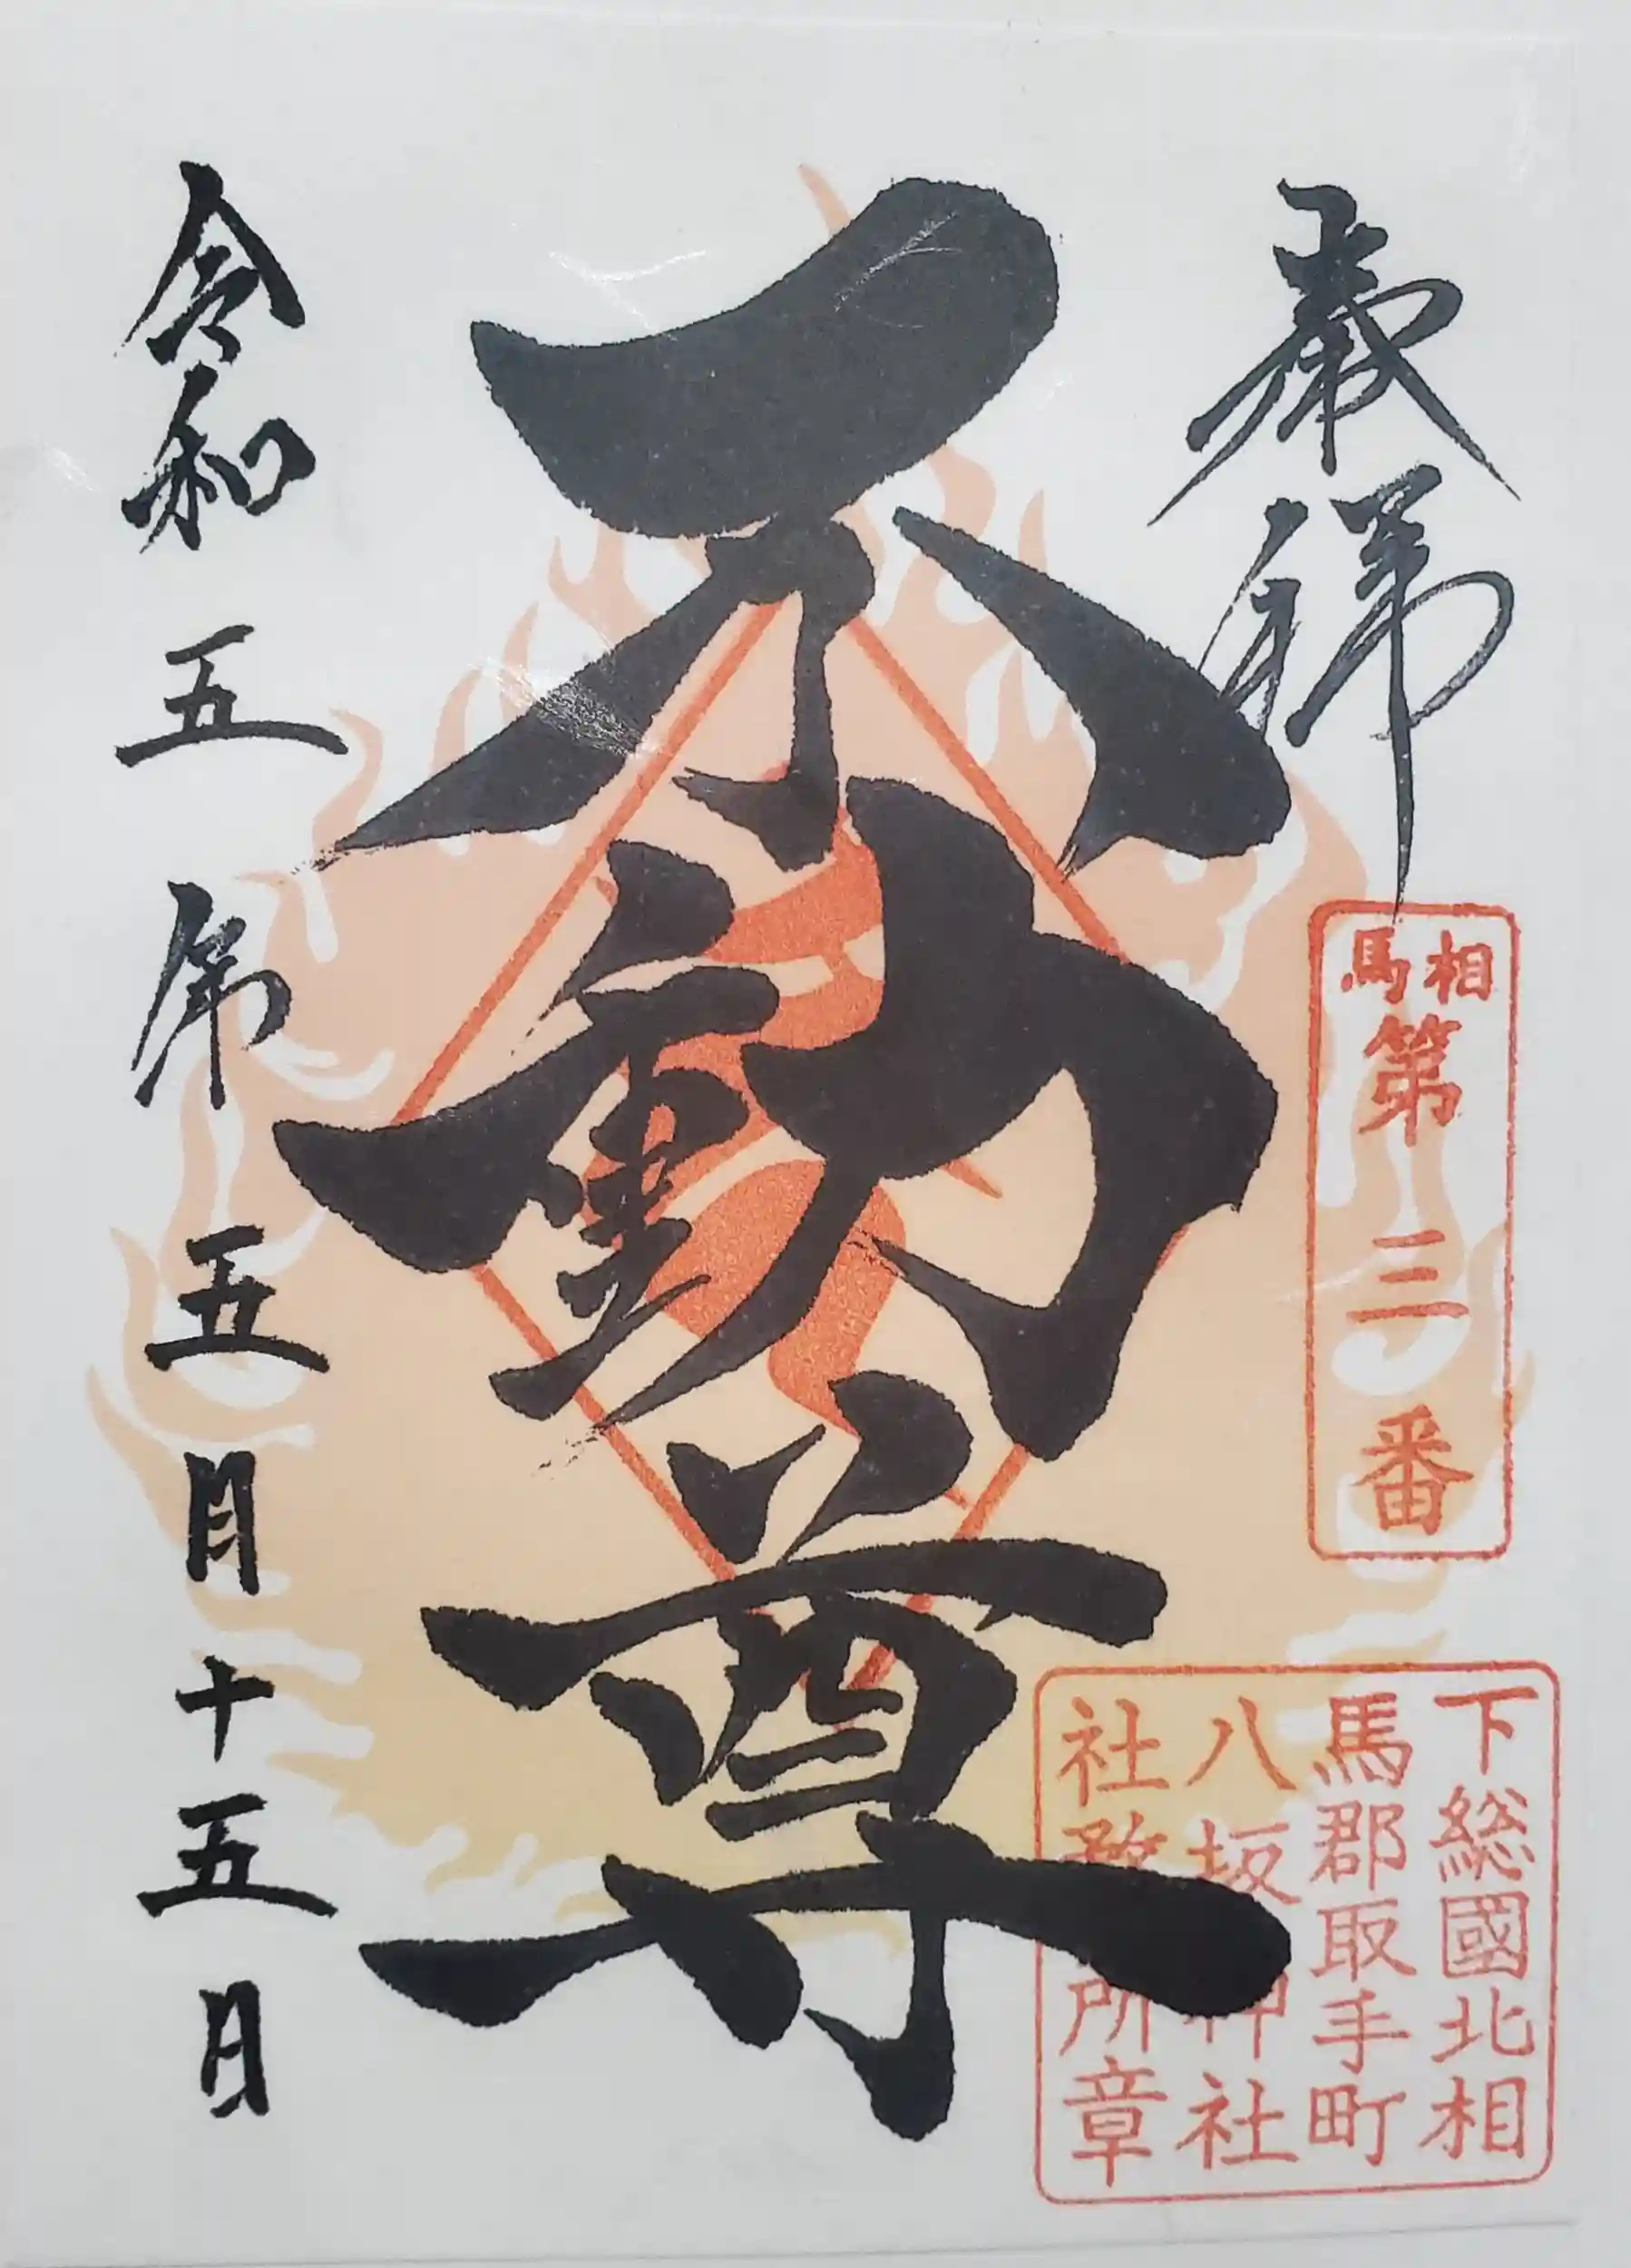 奉拝
相馬
第三番
下総國北相
馬郡取手町
八坂神社
社務所章
不動尊
令和五年五月十五日